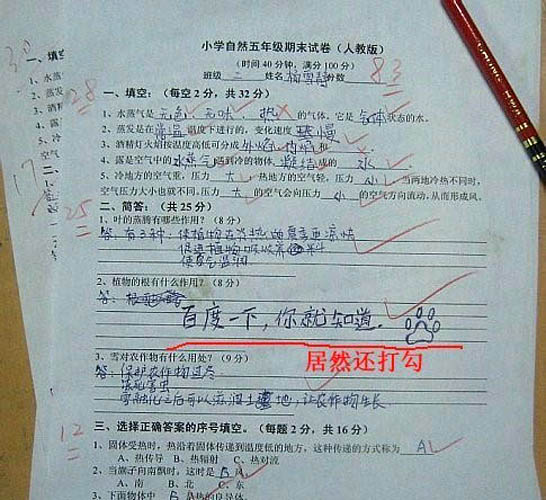 小学自然五年级期末试卷（人教版）
（时间40分钟，满分100分）
班级 二 姓名 分数 83
一、填空：（每空2分，共32分）
28
1、水蒸气是 无色、无味、热 的气体，它是 气体 状态的水。
2、蒸发是在 常温 温度下进行的，变化速度 缓慢
3、酒精灯火焰按温度高低可分成 外焰、内焰 和
4、露是空中的 水蒸气 遇到冷的物体，凝结 成的 水 。
5、冷地方的空气重，压力 大，热地方的空气轻，压力 小，当两地冷热不同时，
空气压力大小也就不同，压力 大 的空气会向压力 小 的空气方向流动，从而形成风。
二、简答：（共25分）
25
1、叶的蒸腾有哪些作用？（8分）
答：有3种：使植物在炎热的夏季更凉快
促进植物吸收养料
使空气湿润
2、植物的根有什么作用？（8分）
答：
百度一下，你就知道。
居然还打勾
3、雪对农作物有什么用处？（9分）
答：保护农作物过冬
冻死害虫
雪融化之后可以滋润土地，让农作物生长
三、选择正确答案的序号填空。（每题2分，共16分）
12
1、固体受热时，热沿着固体传递到温度低的地方，这种传递的方式称为 A
A、热传导 B、热辐射 C、热对流
2、当旗子向南飘时，这时是 B 风
A、南 B、北 C、东
3、下面物体中 B 是热的良导体